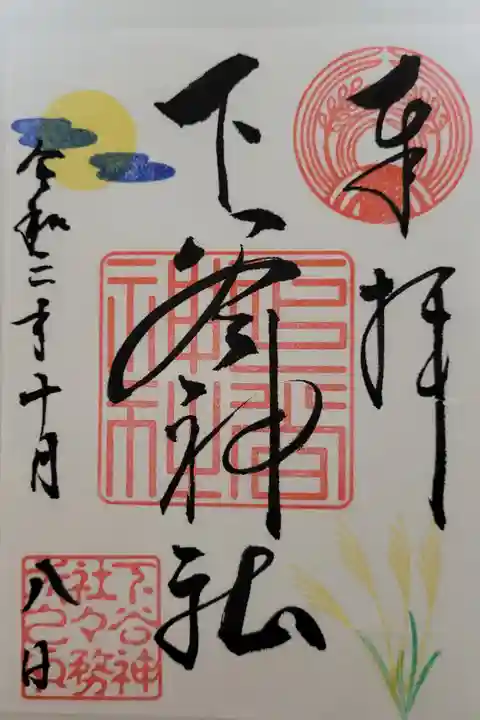 奉拝
下谷神社
令和二年十月
八日
下谷神
社々務
所之印